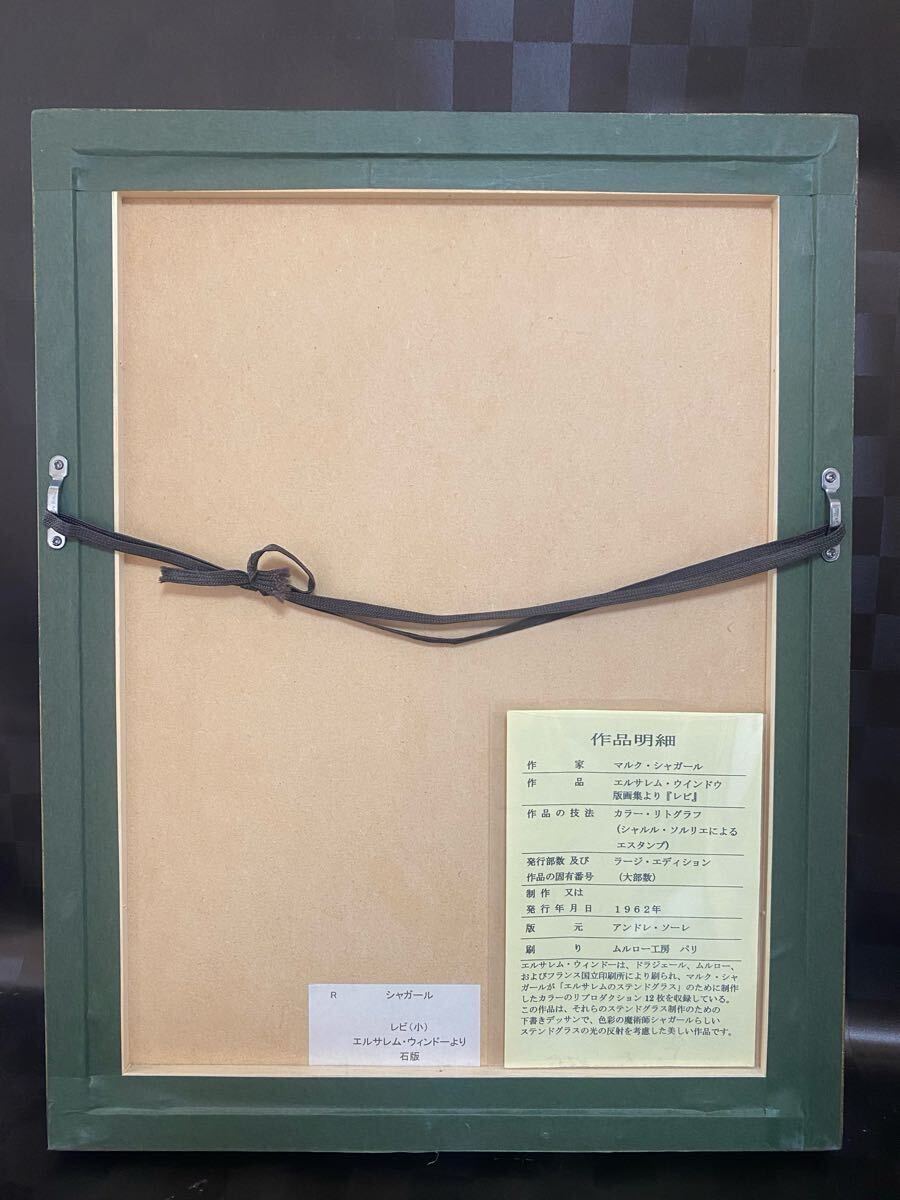 作品明細
作家 マルク・シャガール
作品 エルサレム・ウインドウ
版画集より『レビ』
作品の技法 カラー・リトグラフ
(シャルル・ソルリエによる
エスタンプ)
発行部数 及び ラージ・エディション
作品の固有番号 (大部数)
制作 又は
発行年月日 1962年
版元 アンドレ・ソーレ
刷り ムルロー工房 パリ
エルサレム・ウィンドーは、ドラジェール、ムルロー、
およびフランス国立印刷所により刷られ、マルク・シャ
ガールが「エルサレムのステンドグラス」のために制作
したカラーのリプロダクション12枚を収録している。
この作品は、それらのステンドグラス制作のための
下書きデッサンで、色彩の魔術師シャガールらしい
ステンドグラスの光の反射を考慮した美しい作品です。
R シャガール
レビ(小)
エルサレム・ウィンドーより
石版